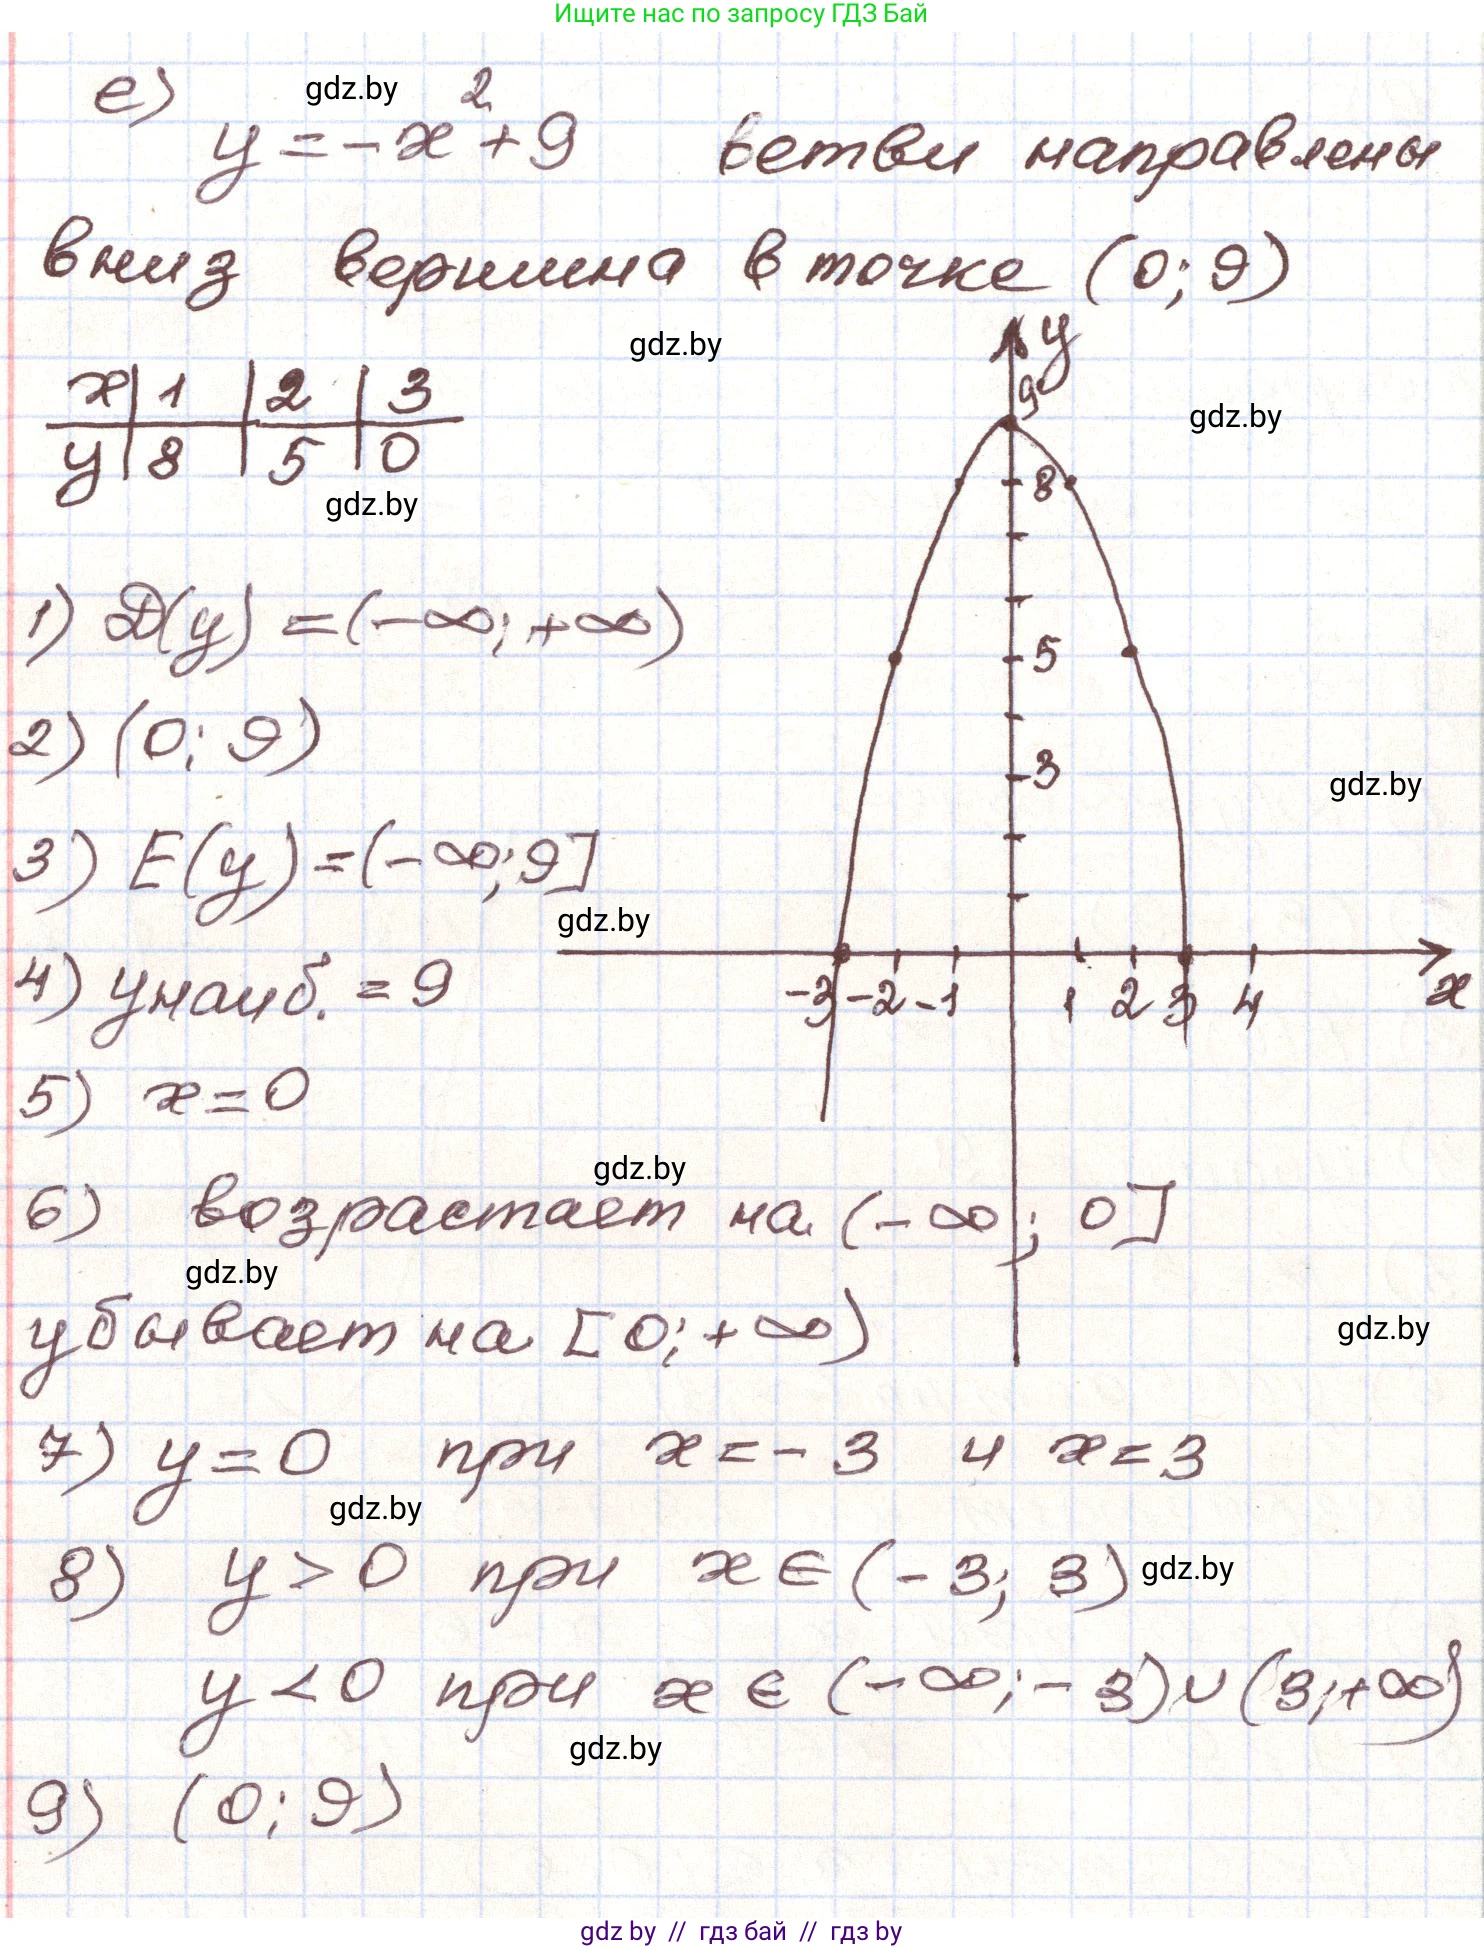 Ищите нас по запросу ГДЗ Бай
е) gdz.by
y = -x² + 9 ветви направлены
вниз вершина в точке (0; 9)
gdz.by
y
x | 1 | 2 | 3
y | 8 | 5 | 0
9
gdz.by
8
gdz.by
1) D(y) = (-∞; +∞)
5
2) (0; 9)
3
gdz.by
3) E(y) = (-∞; 9]
gdz.by
4) yнаиб. = 9
-3 -2 -1 1 2 3 4 x
5) x = 0
gdz.by
6) возрастает на (-∞; 0]
gdz.by
убывает на [0; +∞)
gdz.by
7) y = 0 при x = -3 и x = 3
gdz.by
8) y > 0 при x ∈ (-3; 3) gdz.by
y < 0 при x ∈ (-∞; -3) ∪ (3; +∞)
gdz.by
9) (0; 9)
gdz by // гдз бай // гдз by